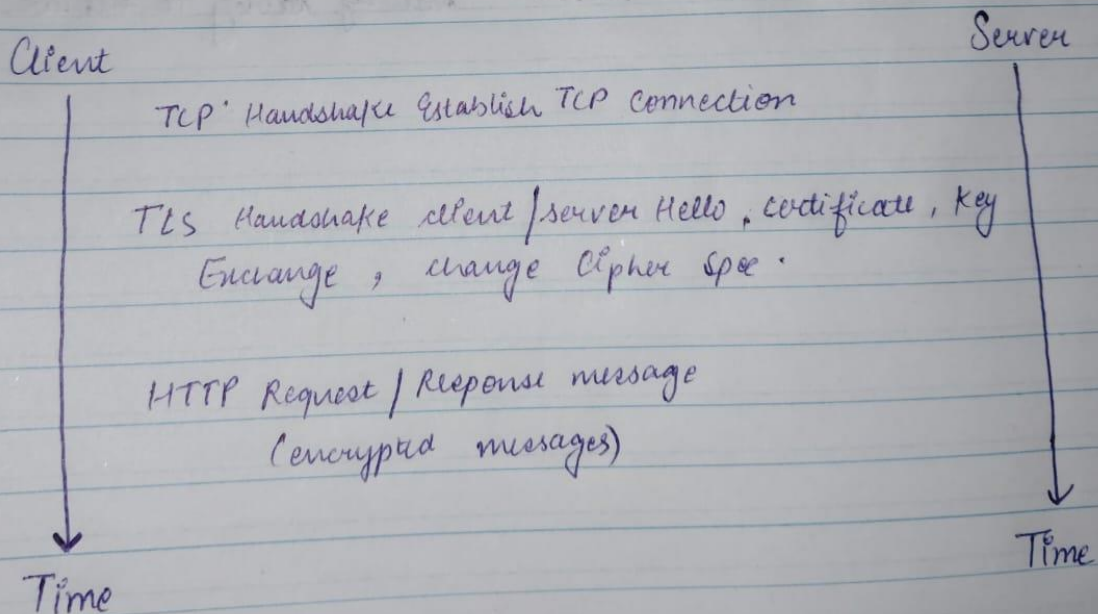 Client
Server
TCP Handshake Establish TCP connection
TLS Handshake client/server Hello, certificate, Key
Exchange, change Cipher Spec.
HTTP Request/Response message
(encrypted messages)
Time
Time